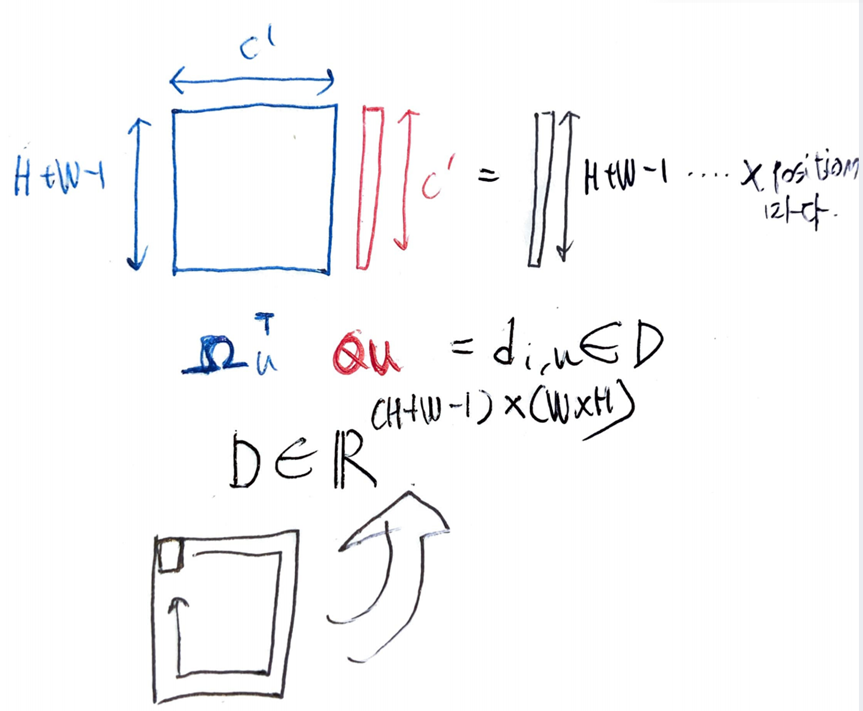 C'
H+W-1
C'
=
H+W-1 .... X position
마다.
Ω_u^T Q_u = d_{i,u} ∈ D
D ∈ ℝ^{(H+W-1)×(W×H)}